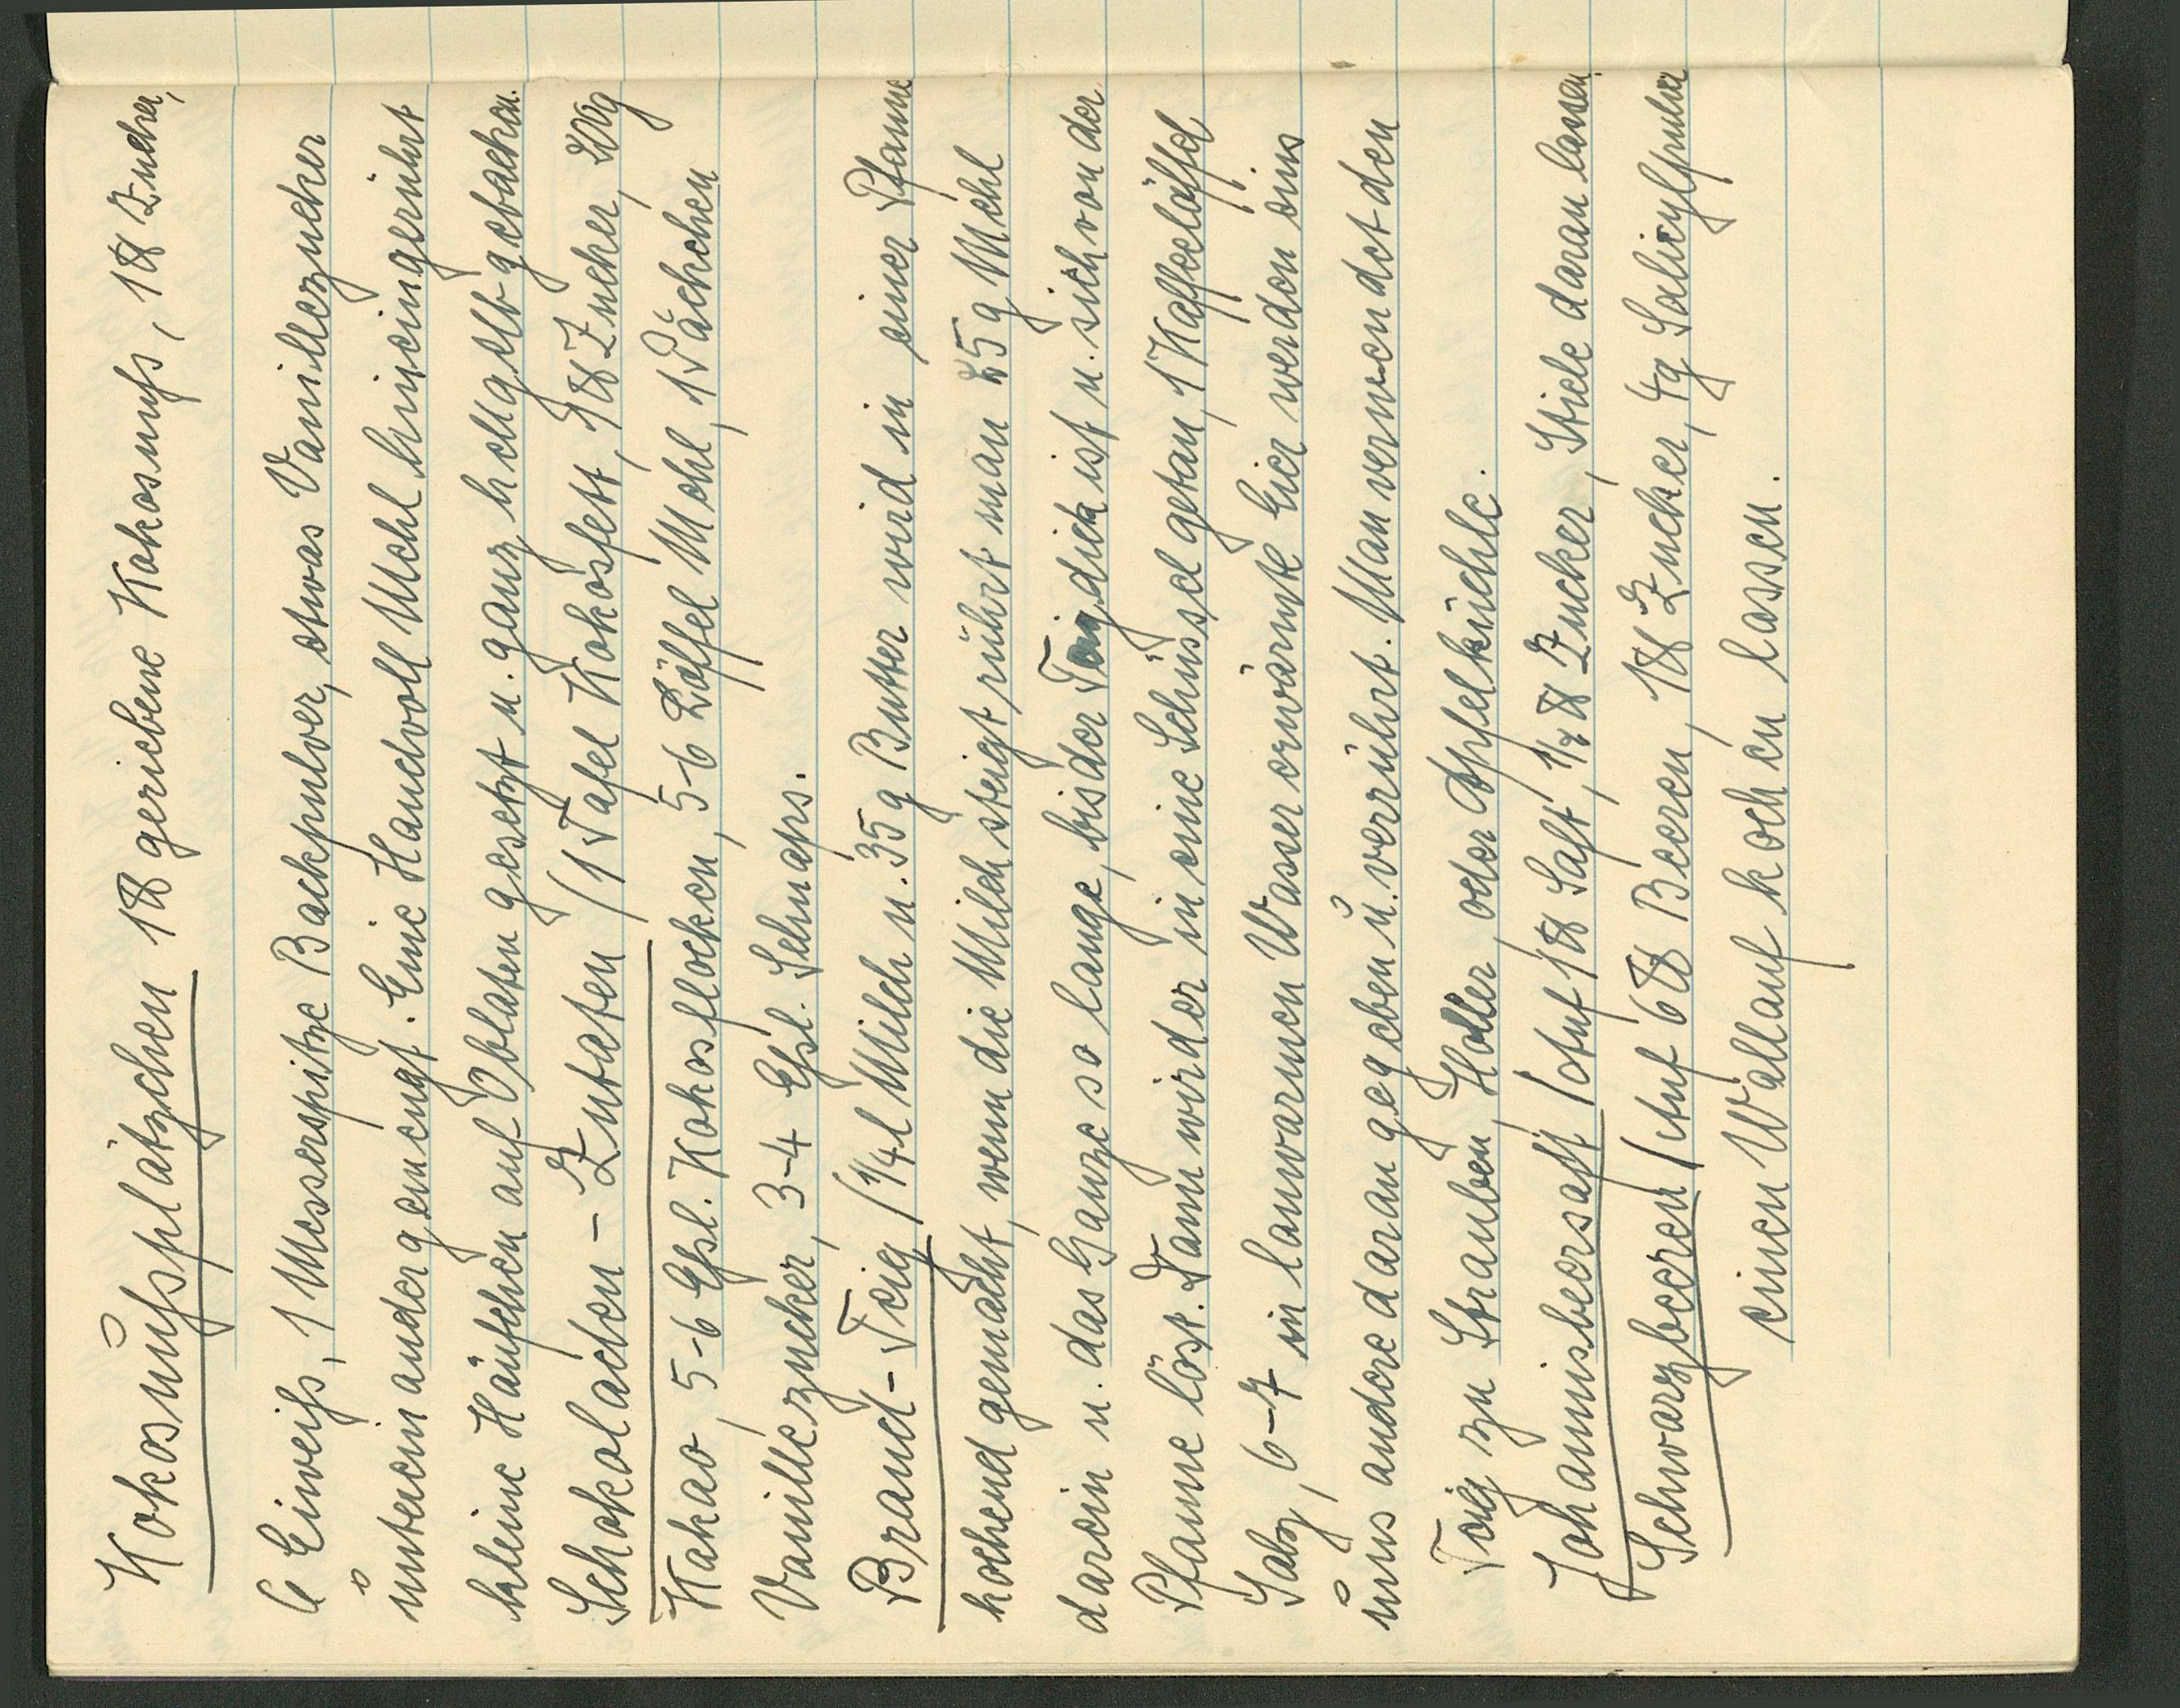 Kokosnußplätzchen 1 ℔ geriebene Kokosnuß, 1 ℔ Zucker,
6 Eiweiß, 1 Messerspitze Backpulver, etwas Vanillezucker
untereinandergemengt. Eine Handvoll Mehl hineingerührt
kleine Häufchen auf Oblaten gesetzt u. ganz hellgelb gebacken.
Schokoladen - Zutaten / 1 Tafel Kokosfett, 1 ℔ Zucker, 200g
Kakao, 5-6 Eßl. Kokosflocken, 5-6 Löffel Mehl, 1 Päckchen
Vanillezucker, 3-4 Eßl. Schnaps.
Brand-Teig / 1/4 l Milch u. 35 g Butter wird in einer Pfanne
kochend gemacht, wenn die Milch steigt rührt man 25 g Mehl
darein u. das Ganze so lange, bis der Teig dick ist u. sich von der
Pfanne löst. Dann wird er in eine Schüssel getan, 1 Kaffeelöffel
Salz, 6-7 in lauwarmen Wasser erwärmte Eier werden eins
ums andere daran gegeben u. verrührt. Man verwendet den
Teig zu Strauben, Holler oder Apfelküchle.
Johannisbeersaft / auf 1 ℔ Saft, 1/2 ℔ Zucker, Stiele daran lassen.
Schwarzbeeren / auf 6 ℔ Beeren, 1 ℔ Zucker, 4g Salicylpulver
einen Wallauf kochen lassen.